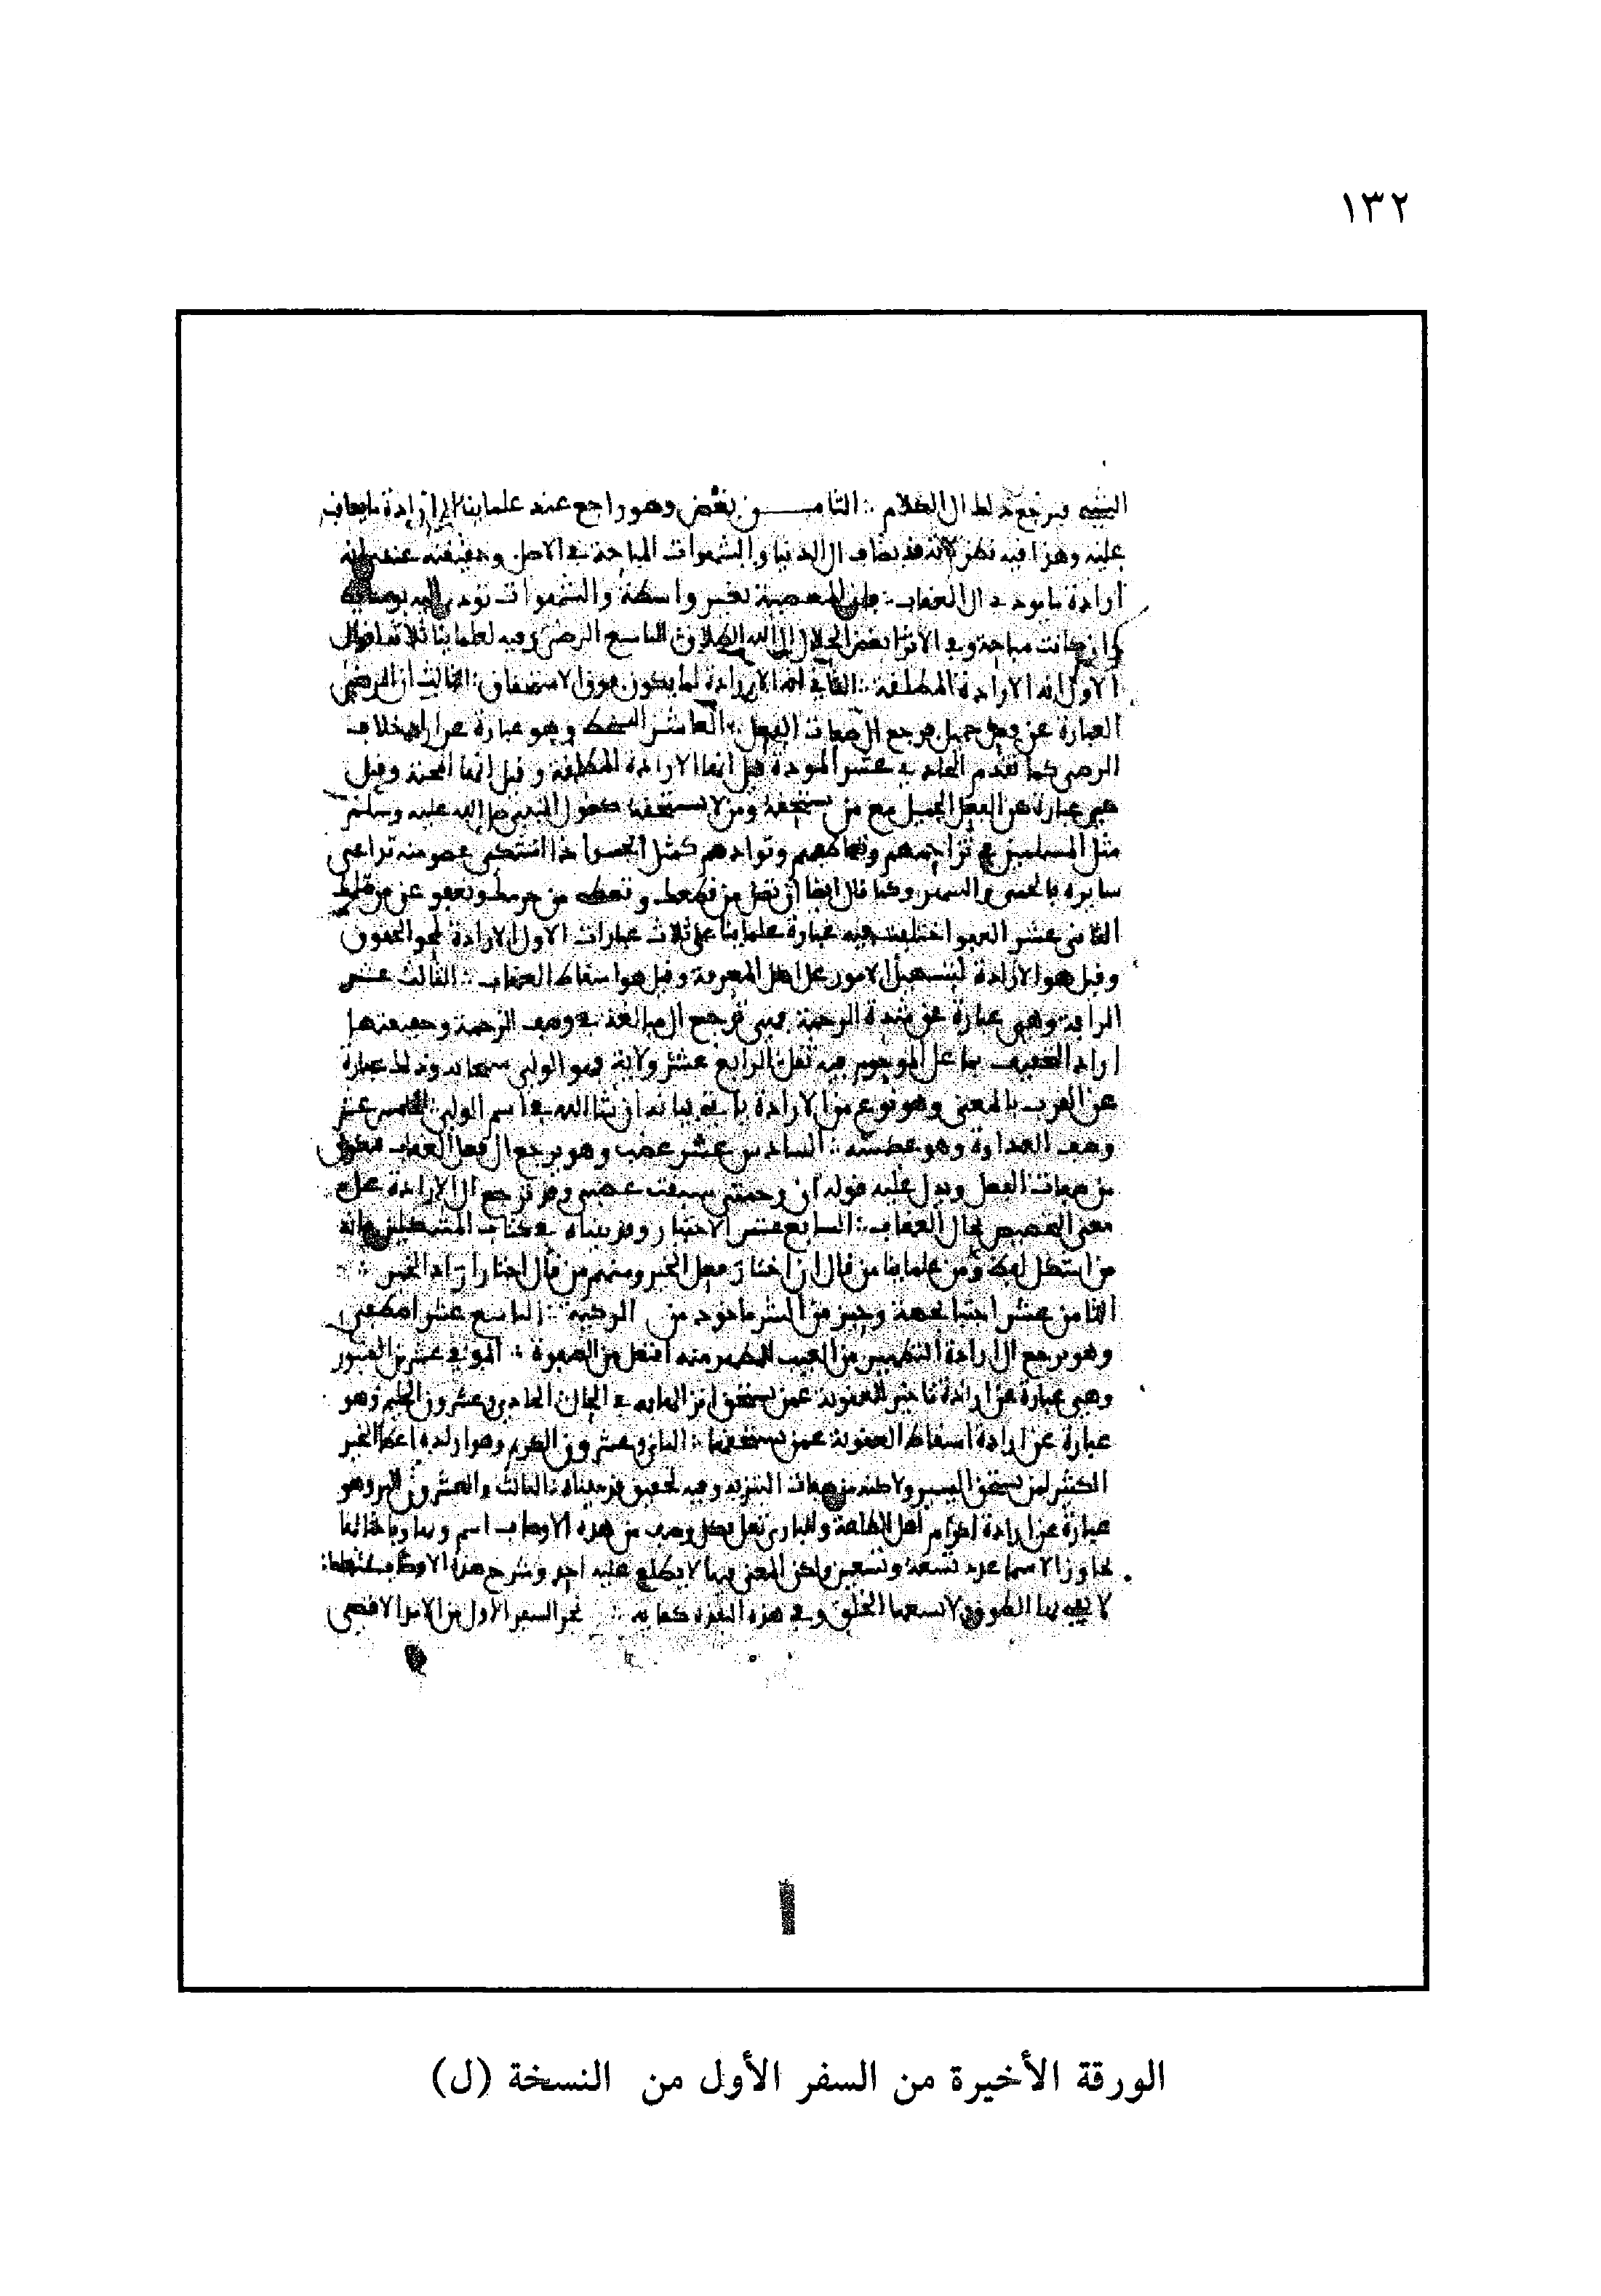 ١٣٢
ويرجع ذلك الى الكلام الثامن بغض وهو راجع عند علماينا الى ارادة
عليه وهذا فيه نظر لانه قد يضاف الى الدنيا والشهوات المباحة في الاصل وحقيقته عندي انه
ارادة ما يودي الى العقاب المعصية بغير واسطة والشهوات تودي اليه بوساطة
وان كانت مباحة وفي الاثر ابغض الحلال الى الله الطلاق التاسع الرضى وفيه لعلماينا ثلاثة اقوال
الاول انه الارادة المطلقة الثاني انه الارادة لما يكون فوق الاستحقاق الثالث ان الرضى
العبارة عن فعل جميل فيرجع الى صفات الفعل العاشر السخط وهو عبارة عن خلاف
الرضى كما تقدم الحادي عشر المودة قيل انها الارادة المطلقة وقيل انها المحبة وقيل
هي عبارة عن الفعل الجميل مع من يستحقه ومن لا يستحقه كقول النبي صلى الله عليه وسلم
مثل المسلمين في تراحمهم وتعاطفهم وتوادهم كمثل الجسد اذا اشتكى عضو منه تداعى
سايره بالحمى والسهر وكما قال ايضا ان تصل من قطعك وتعطي من حرمك وتعفو عن من ظلمك
الثاني عشر العفو اختلفت فيه عبارة علماينا على ثلاث عبارات الاول الارادة لمحو الحقوق
وقيل هو الارادة لتسهيل الامور على اهل المعرفة وقيل هو اسقاط العقاب الثالث عشر
الرافة وهي عبارة عن شدة الرحمة فهي ترجع الى مبالغة في وصف الرحمة وحقيقتها
ارادة التخفيف الرابع عشر ولاية فهو الولي سبحانه وذلك عبارة
عن القرب بالمعنى وهو نوع من الارادة ياتي بيانه ان شا الله في اسم الولي الخامس عشر
وصف العداوة وهو السادس عشر غضب وهو يرجع الى فعل العقاب فيكون
من صفات الفعل ويدل عليه قوله ان رحمتي سبقت غضبي وقد ترجع الى الارادة على
معنى لمحال العقاب السابع عشر الاختيار وقد بيناه في كتاب المشكلين فانه
من استشكل لفظه ومن علماينا من قال ان اختار فعل الخير ومنهم من قال اختار اراد الخير
الثامن عشر من البشر ماخوذ من التاسع عشر اصطفى
وهو يرجع الى ارادة التطهير من العيب افتعل من الصفوة الموفي عشرين الصبور
وهي عبارة عن ارادة تاخير العقوبة عمن يستحق انزالها به في الحال الحادي وعشرون الحليم وهو
عبارة عن ارادة اسقاط العقوبة عمن يستحقها الثاني وعشرون الكريم وهو ارادة اعطا الخير
الكثير لمن يستحق اليسير ولاهله من صفات التنزيه وفيه تحقيق قد بيناه الثالث والعشرون البر وهو
عبارة عن ارادة اكرام اهل الطاعة وللباري تعلى بكل وصف من هذه الاوصاف اسم
الاسما عدد تسعة وتسعين ولكن المعنى فيها لا يطلع عليه احد وشرح هذه الاوصاف
لا يفي بها الطوق ولا يسعها الخلق وفي هذه النبذة كفاية نجز السفر الاول من الامد الاقصى
الورقة الأخيرة من السفر الأول من النسخة (ل)